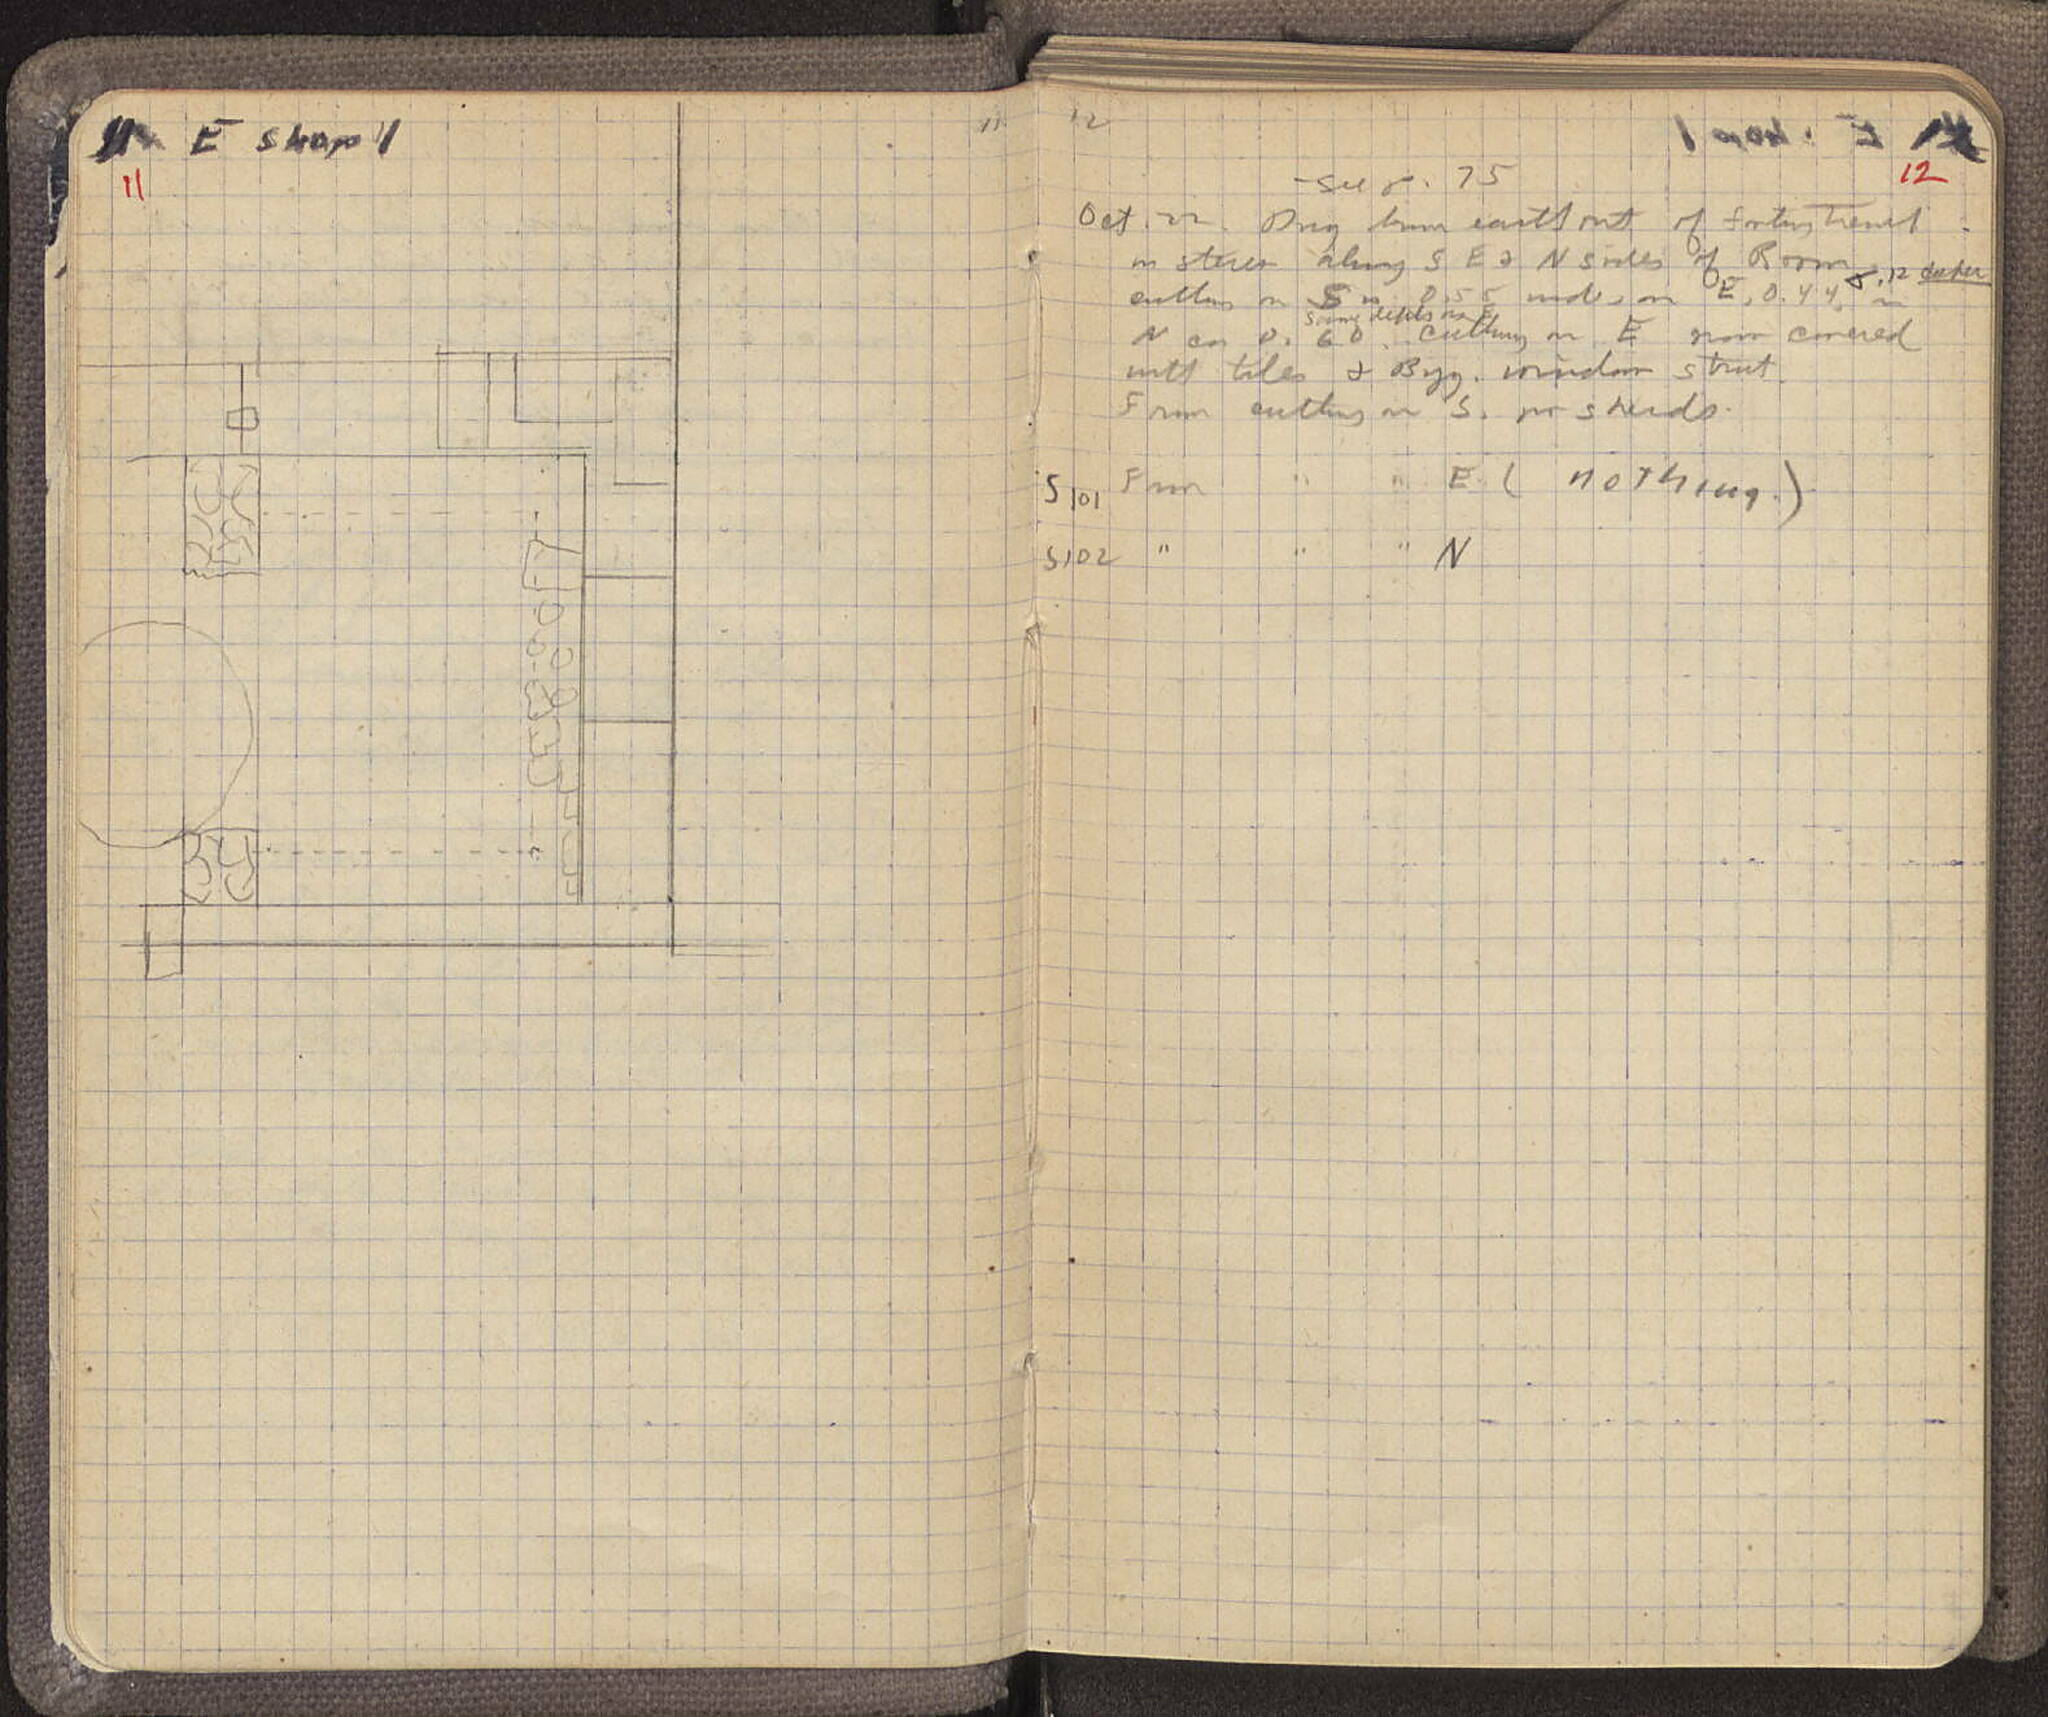 11 E shop 1
11
11
12
12
see p. 75
Oct. 22. Dug brown earth out of footing trench
in stereo along S E & N sides of Room
cutting on S is 0.55 wide, on E, 0.44, .12 deeper
same depth as E
N ca 0.60. Cutting on E now covered
with tiles & Byz. window strut.
From cutting on S. no sherds.
S101 From " " E ( nothing.)
S102 " " " N